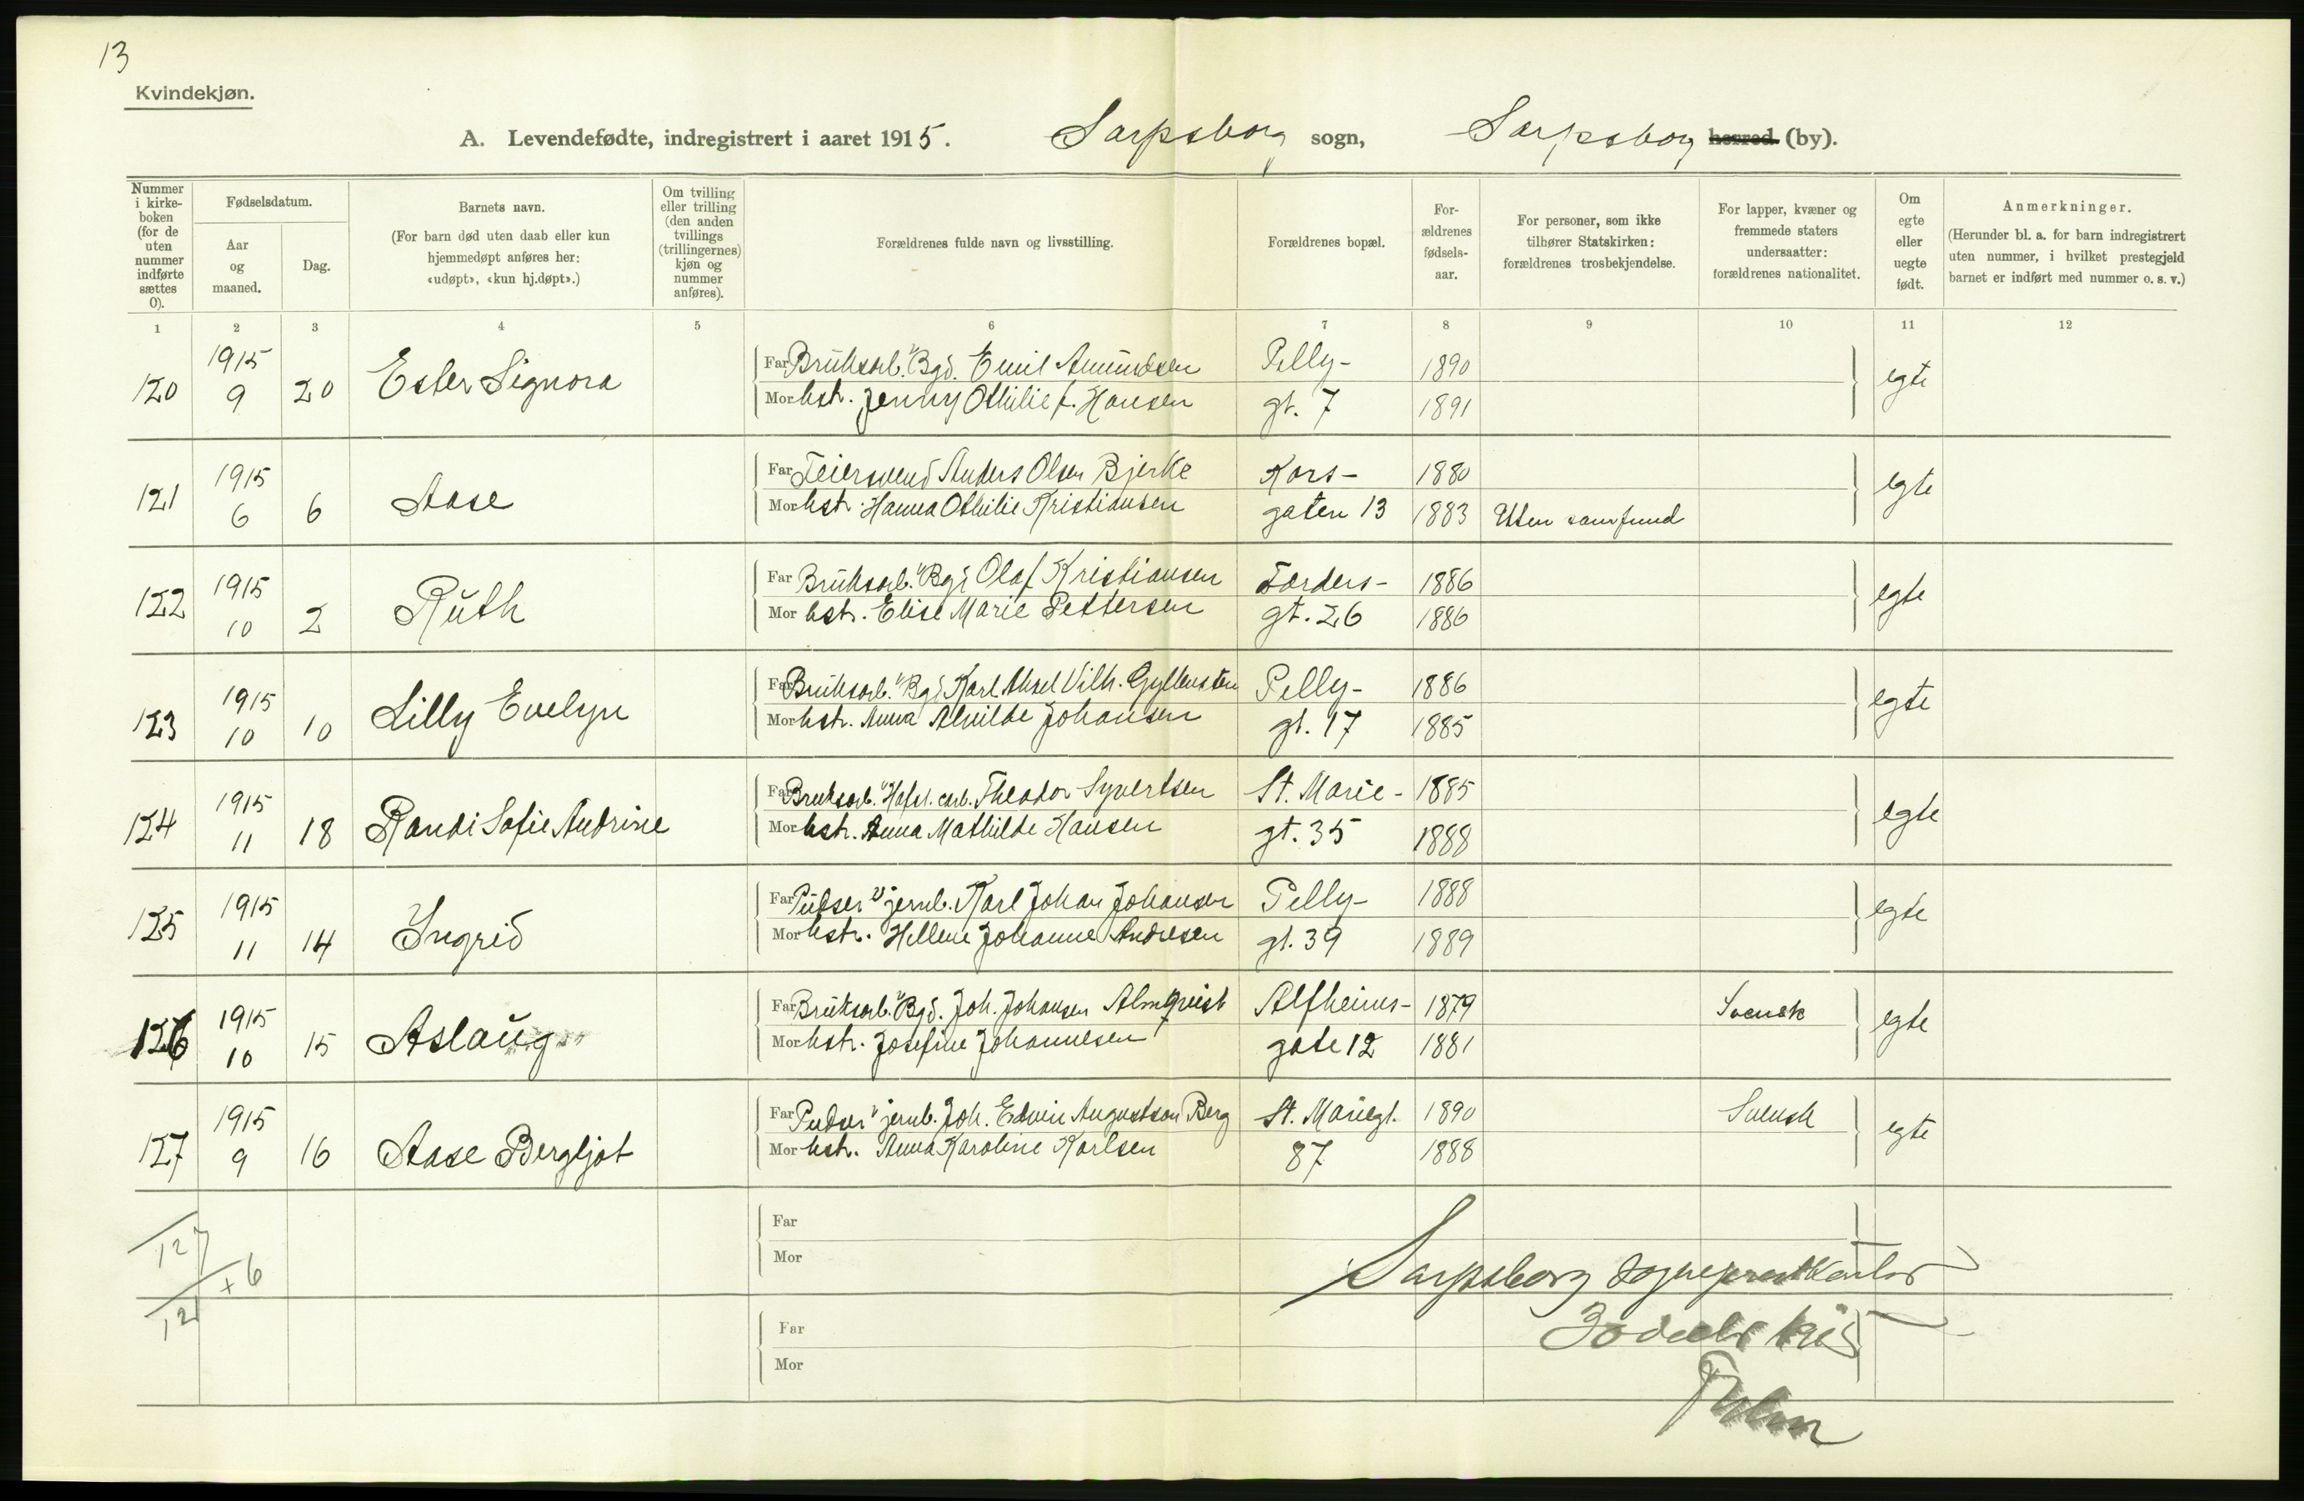 13
Kvindekjøn.
A. Levendefødte, indregistrert i aaret 1915. Sarpsborg sogn, Sarpsborg herred (by).
Nummer i kirke-boken (for de uten nummer indførte sættes 0).
Fødselsdatum.
Aar og maaned.
Dag.
Barnets navn.
(For barn død uten daab eller kun hjemmedøpt anføres her: «udøpt», «kun hj.døpt».)
Om tvilling eller trilling (den anden tvillings (trillingernes) kjøn og nummer anføres).
Forældrenes fulde navn og livsstilling.
Forældrenes bopæl.
For-ældrenes fødsels-aar.
For personer, som ikke tilhører Statskirken: forældrenes trosbekjendelse.
For lapper, kvæner og fremmede staters undersaatter: forældrenes nationalitet.
Om egte eller uegte født.
Anmerkninger.
(Herunder bl. a. for barn indregistrert uten nummer, i hvilket prestegjeld barnet er indført med nummer o. s. v.)
1 2 3 4 5 6 7 8 9 10 11 12
1915 Far Bruksarb. v Bgd. Emil Amundsen Pelly- 1890
120 9 20 Ester Signora Mor hstr. Jenny Othilie f. Hansen gt. 7 1891 egte
1915 Far Feiersvend Anders Olsen Bjerke Kors- 1880
121 6 6 Aase Mor hstr. Hanna Othilie Kristiansen gaten 13 1883 Uten samfund egte
1915 Far Bruksarb. v Bgd Olaf Kristiansen Torders- 1886
122 10 2 Ruth Mor hstr. Elise Marie Pettersen gt. 26 1886 egte
1915 Far Bruksarb. v Bgd Karl Aksel Vilh. Gyllensten Pelly- 1886
123 10 10 Lilly Evelyn Mor hstr. Anna Alvilde Johansen gt. 17 1885 egte
1915 Far Bruksarb. v Hafsl. carb. Theodor Syvertsen St. Marie- 1885
124 11 18 Randi Sofie Andrine Mor hstr. Anna Mathilde Hansen gt. 35 1888 egte
1915 Far Pudser v jernb. Karl Johan Johansen Pelly- 1888
125 11 14 Ingrid Mor hstr. Hellene Johanne Andresen gt. 39 1889 egte
1915 Far Bruksarb. v Bgd. Joh. Johansen Almqvist Alfheims- 1879 Svensk
126 10 15 Aslaug Mor hstr. Josefine Johannesen gate 12 1881 egte
1915 Far Pudser v jernb. Joh. Edvin Augustson Berg St. Mariegt. 1890 Svensk
127 9 16 Aase Bergljot Mor hstr. Anna Karoline Karlsen 87 1888 egte
127 Far
121 + 6 Mor
Sarpsborg sogneprestkontor
Far
Mor